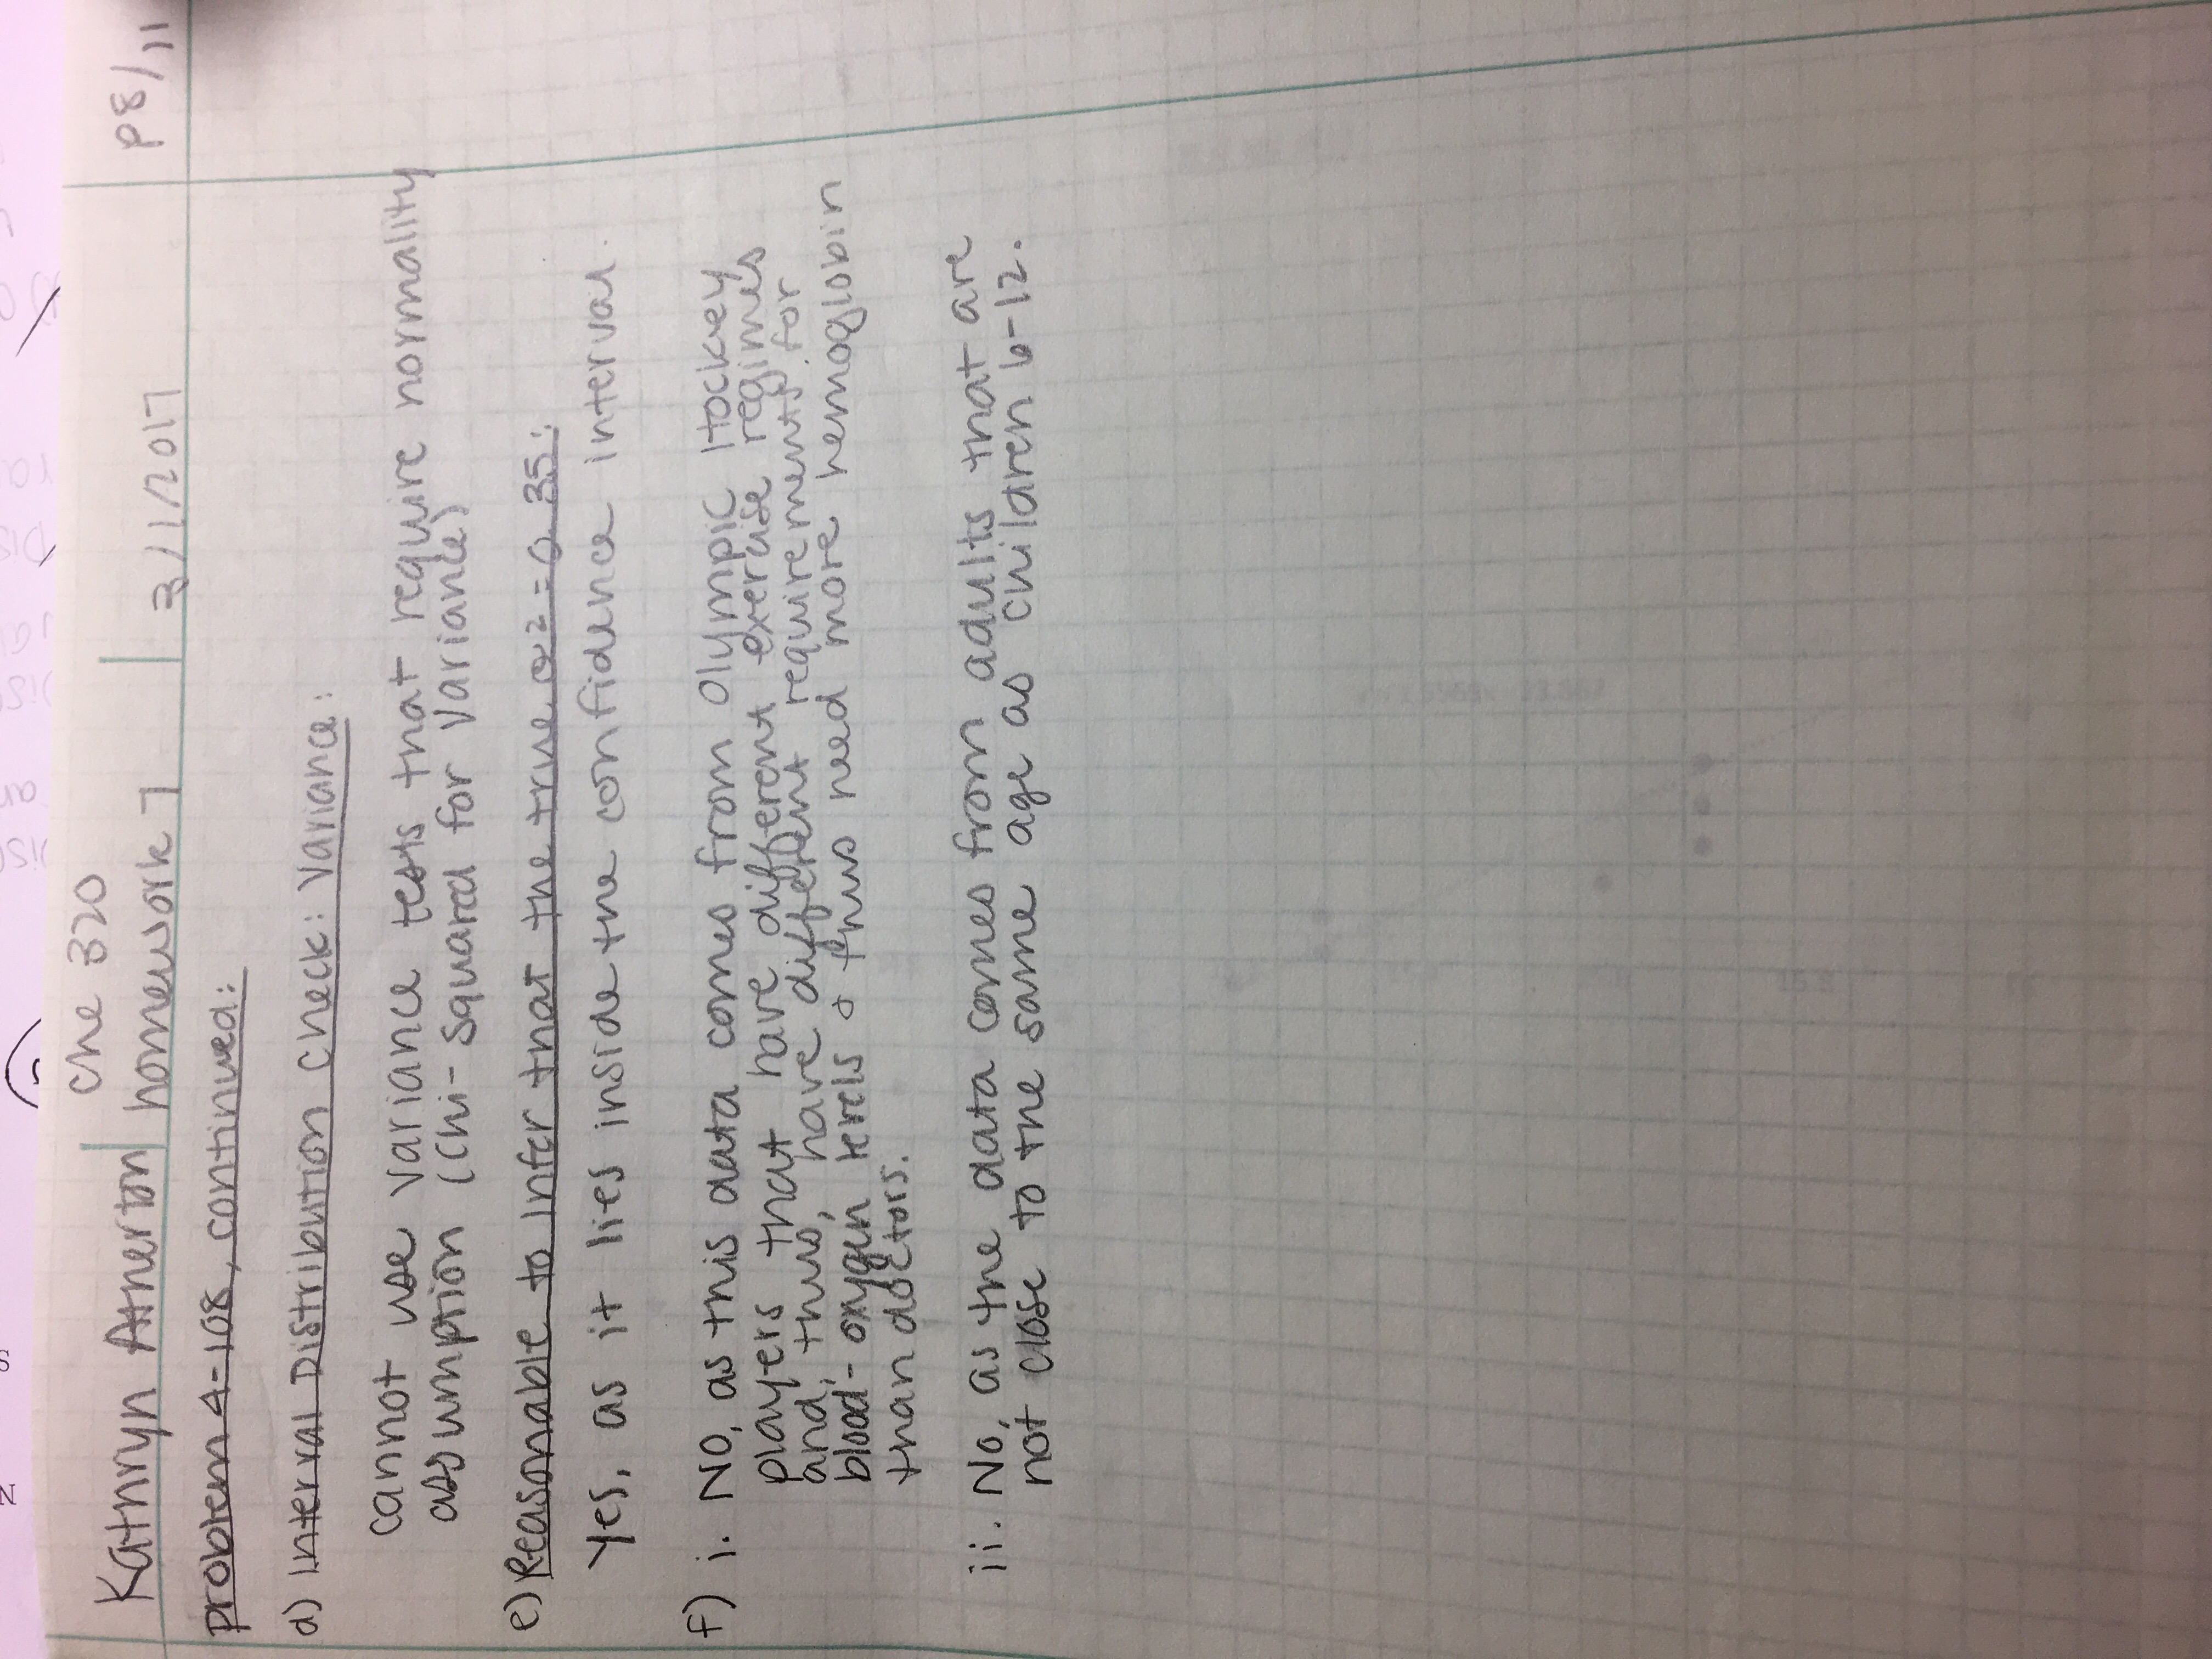 Che 320
Kathryn Atherton homework 7 3/1/2017 p8/11
problem 4-108, continued:
d) Interval Distribution Check: Variance:
cannot use variance tests that require normality
assumption (Chi-Squared for Variance)
e) Reasonable to infer that the true σ² = 0.35:
Yes, as it lies inside the confidence interval.
f) i. No, as this data comes from Olympic Hockey
players that have different exercise regimes
and, thus, have different requirements for
blood-oxygen levels & thus need more hemoglobin
than doctors.
ii. No, as the data comes from adults that are
not close to the same age as children 6-12.